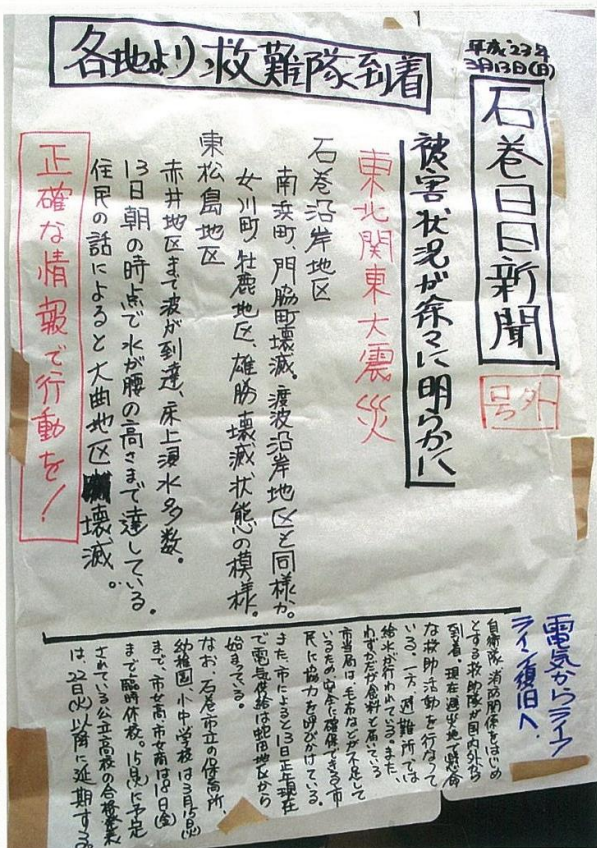 平成23年
3月13日(日)
石巻日日新聞
号外
各地より救難隊到着
被害状況が徐々に明らかに
東北関東大震災
石巻沿岸地区
南浜町、門脇町壊滅。渡波沿岸地区も同様か。
女川町、牡鹿地区、雄勝 壊滅状態の模様。
東松島地区
赤井地区まで波が到達、床上浸水多数。
13日朝の時点で水が腰の高さまで達している。
住民の話によると大曲地区壊滅。
正確な情報で行動を!
電気からライフ
ライン復旧へ
自衛隊、消防関係をはじめ
とする救助隊が国内外から
到着。現在選出地で懸命
な救助活動を行なって
いる。一方、避難所では
給水が行われている。また、
わずかだが食料も届いている
市当局は毛布などが不足して
いるため安全に確保できる市
民に協力を呼びかけている。
また、市によると13日正午現在
で電気供給は蛇田地区から
始まっている。
なお、石巻市立の保育所、
幼稚園、小中学校は3月15日(火)
まで、市女高・市女商は18日(金)
まで臨時休校。15日(火)に予定
されている公立高校の合格発表
は、22日(火)以降に延期する。